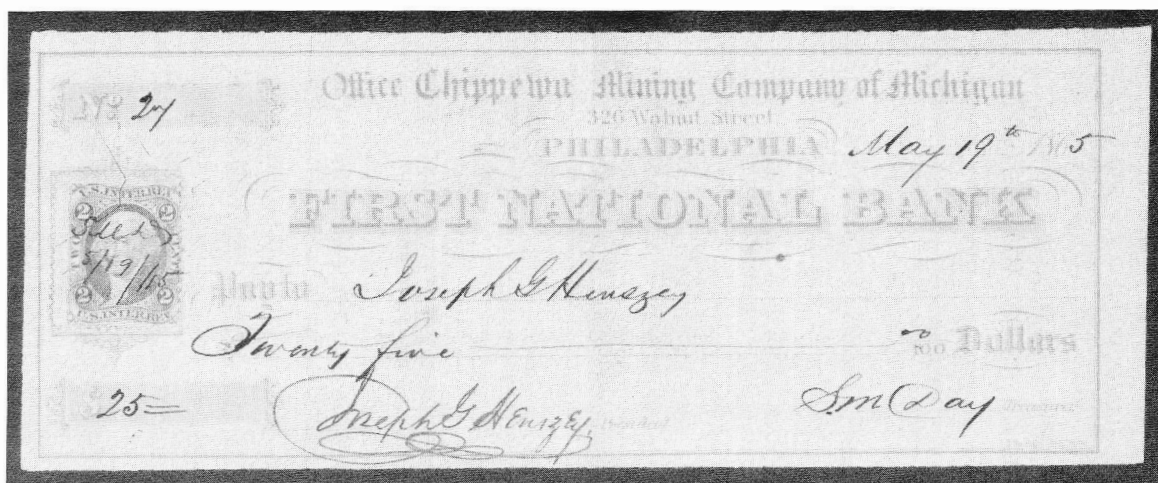 Office Chippewa Mining Company of Michigan
No 27
326 Walnut Street
PHILADELPHIA May 19th 1865
FIRST NATIONAL BANK
U.S. INTER. REV.
2 2
TWO CENTS
5/19/65
2 2
U.S. INTER. REV.
Pay to Joseph G Henszey
Twenty five 100 Dollars
25= Joseph G Henszey. President S.M Day Treasurer